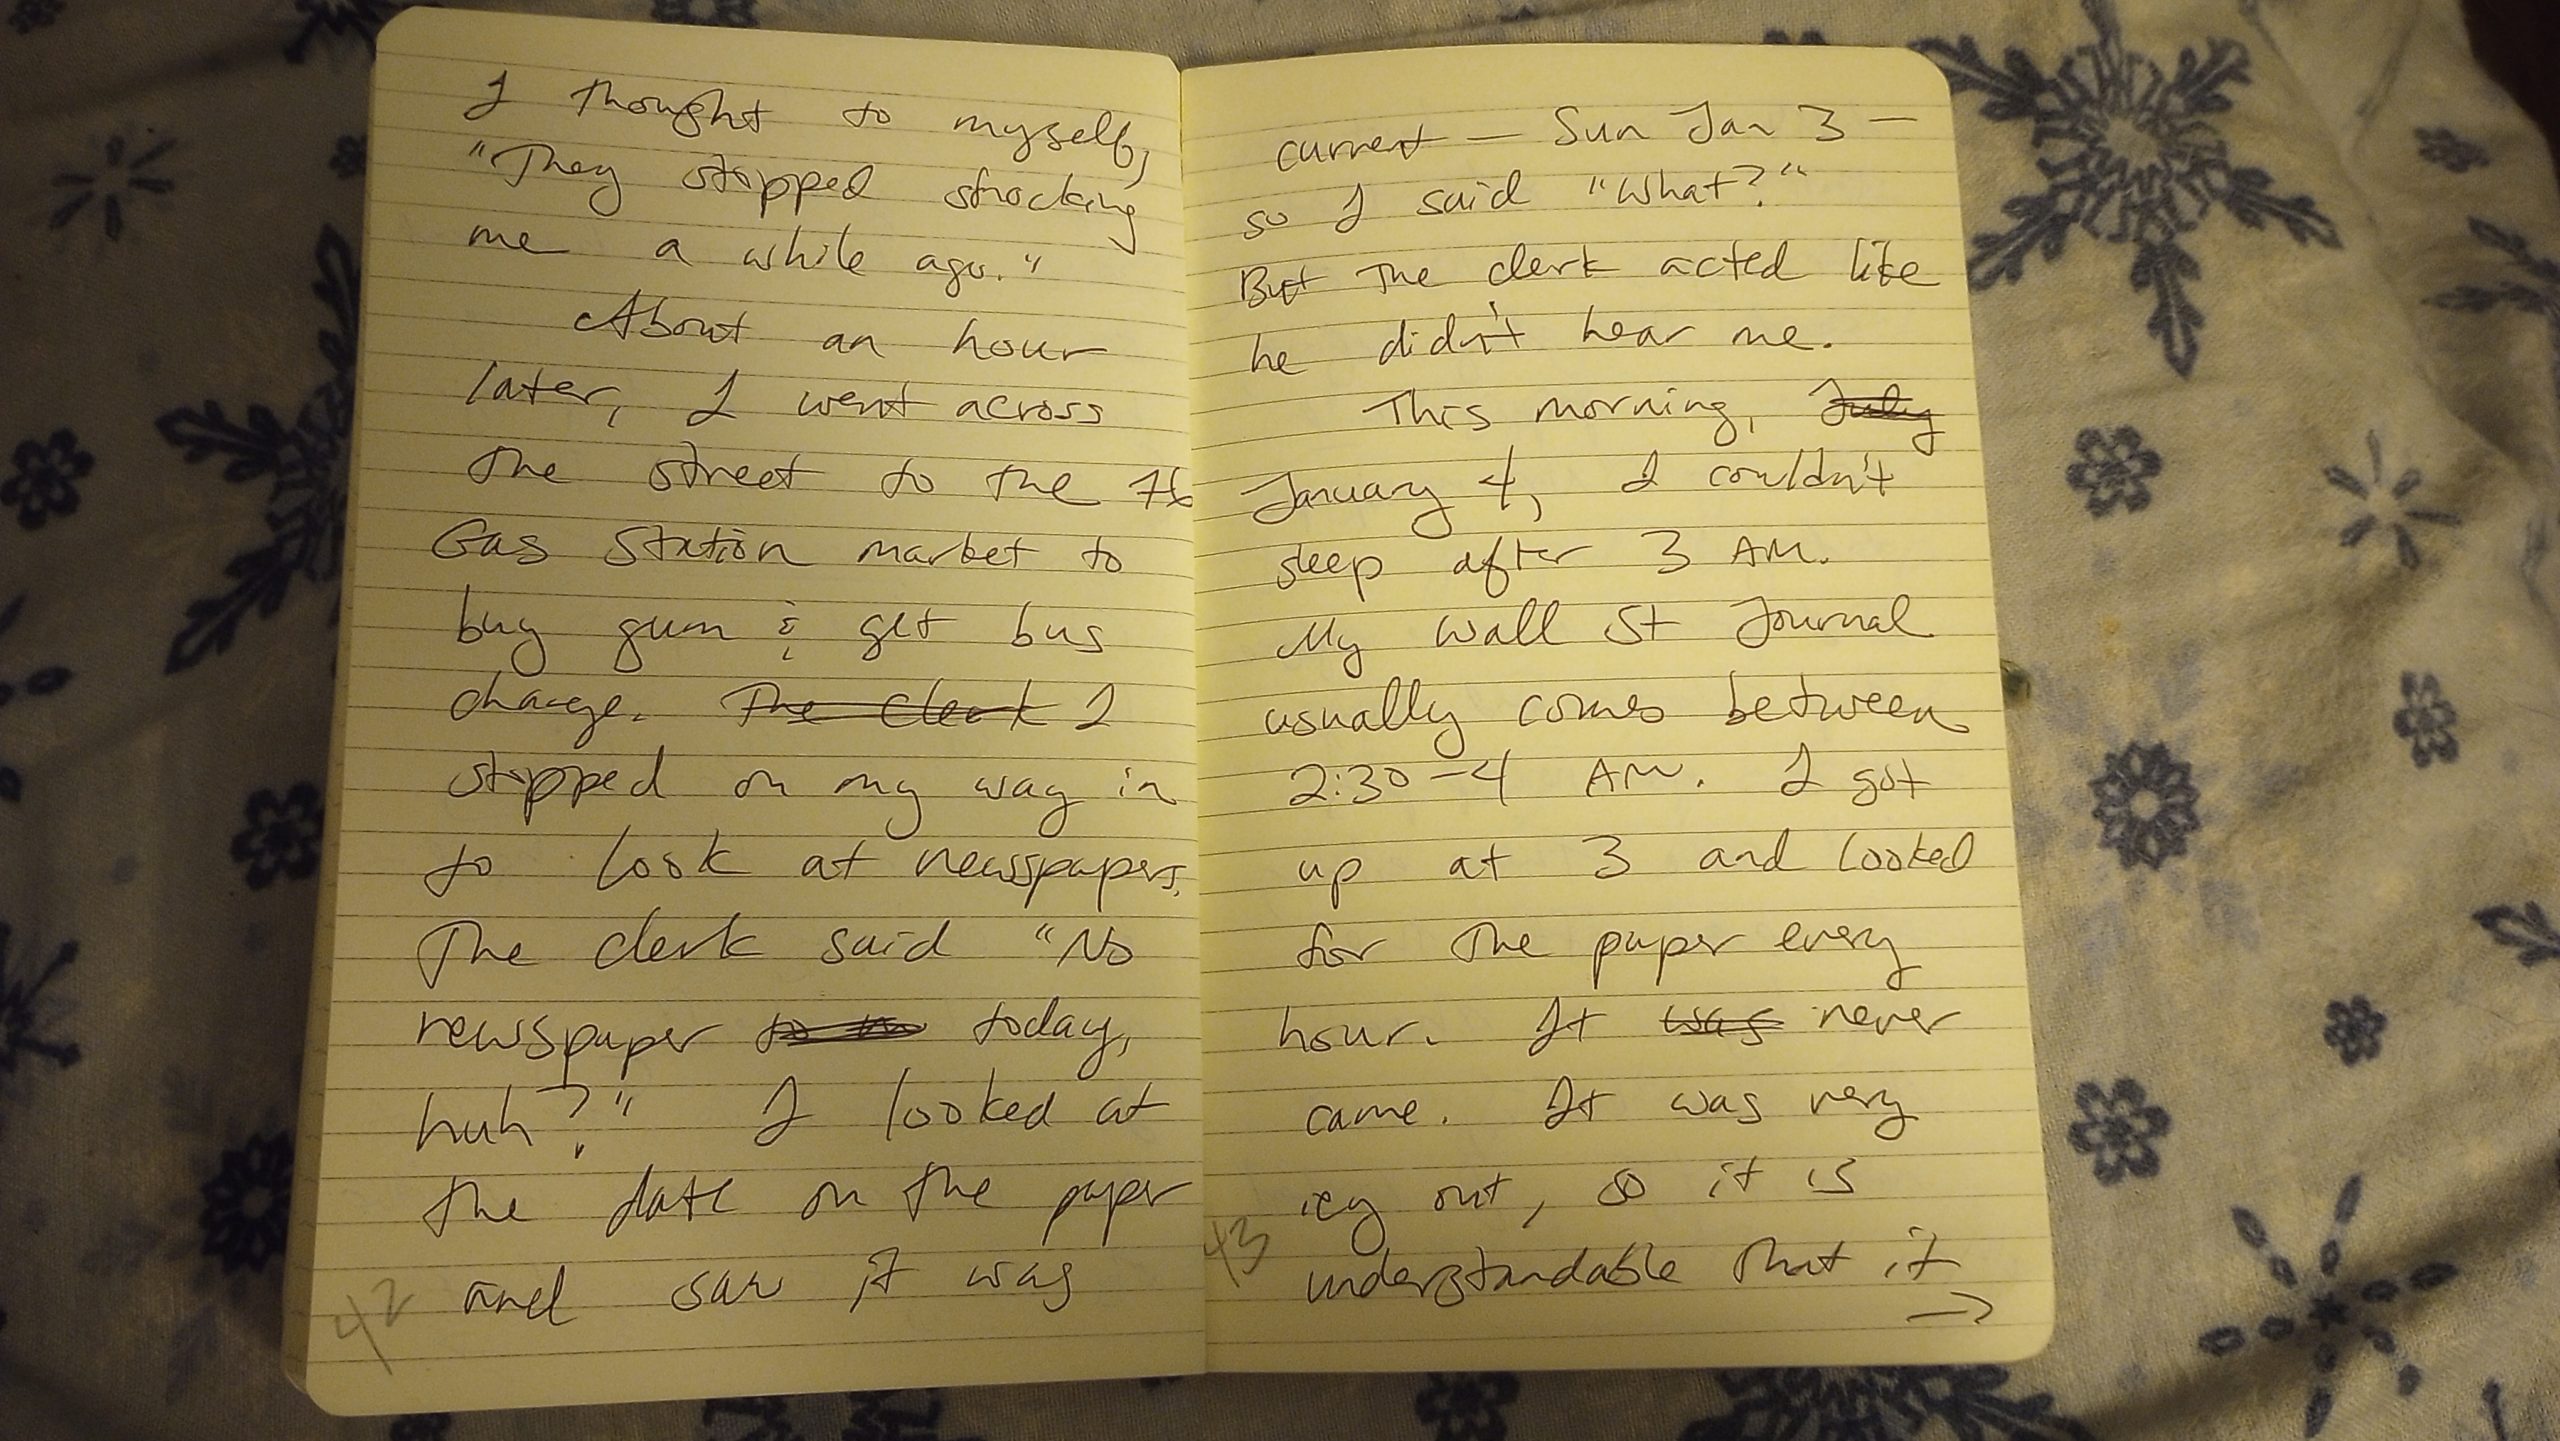 I thought to myself,
"They stopped shocking
me a while ago."
About an hour
later, I went across
the street to the 76
Gas Station market to
buy gum & get bus
change. The clerk I
stopped on my way in
to look at newspapers.
The clerk said "No
newspaper today,
huh?" I looked at
the date on the paper
and saw it was
42
current — Sun Jan 3 —
so I said "What?"
But the clerk acted like
he didn't hear me.
This morning, July
January 4, I couldn't
sleep after 3 AM.
My Wall St Journal
usually comes between
2:30-4 AM. I got
up at 3 and looked
for the paper every
hour. It was never
came. It was very
icy out, so it is
understandable that it
→
43